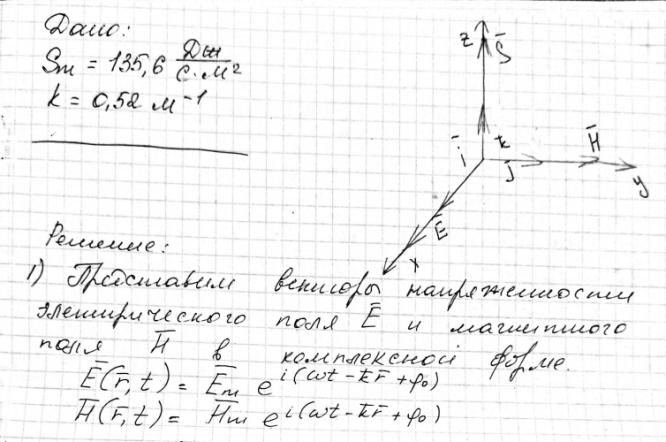 Дано:
Sm = 135,6 Дж/с·м²
k = 0,52 м⁻¹
z
S̄
ī
k̄
j̄
H̄
y
Ē
x
Решение:
1) Представим векторы напряженности
электрического поля Ē и магнитного
поля H̄ в комплексной форме.
Ē(r̄,t) = Ēm e^i(ωt - k̄r̄ + φ₀)
H̄(r̄,t) = H̄m e^i(ωt - k̄r̄ + φ₀)